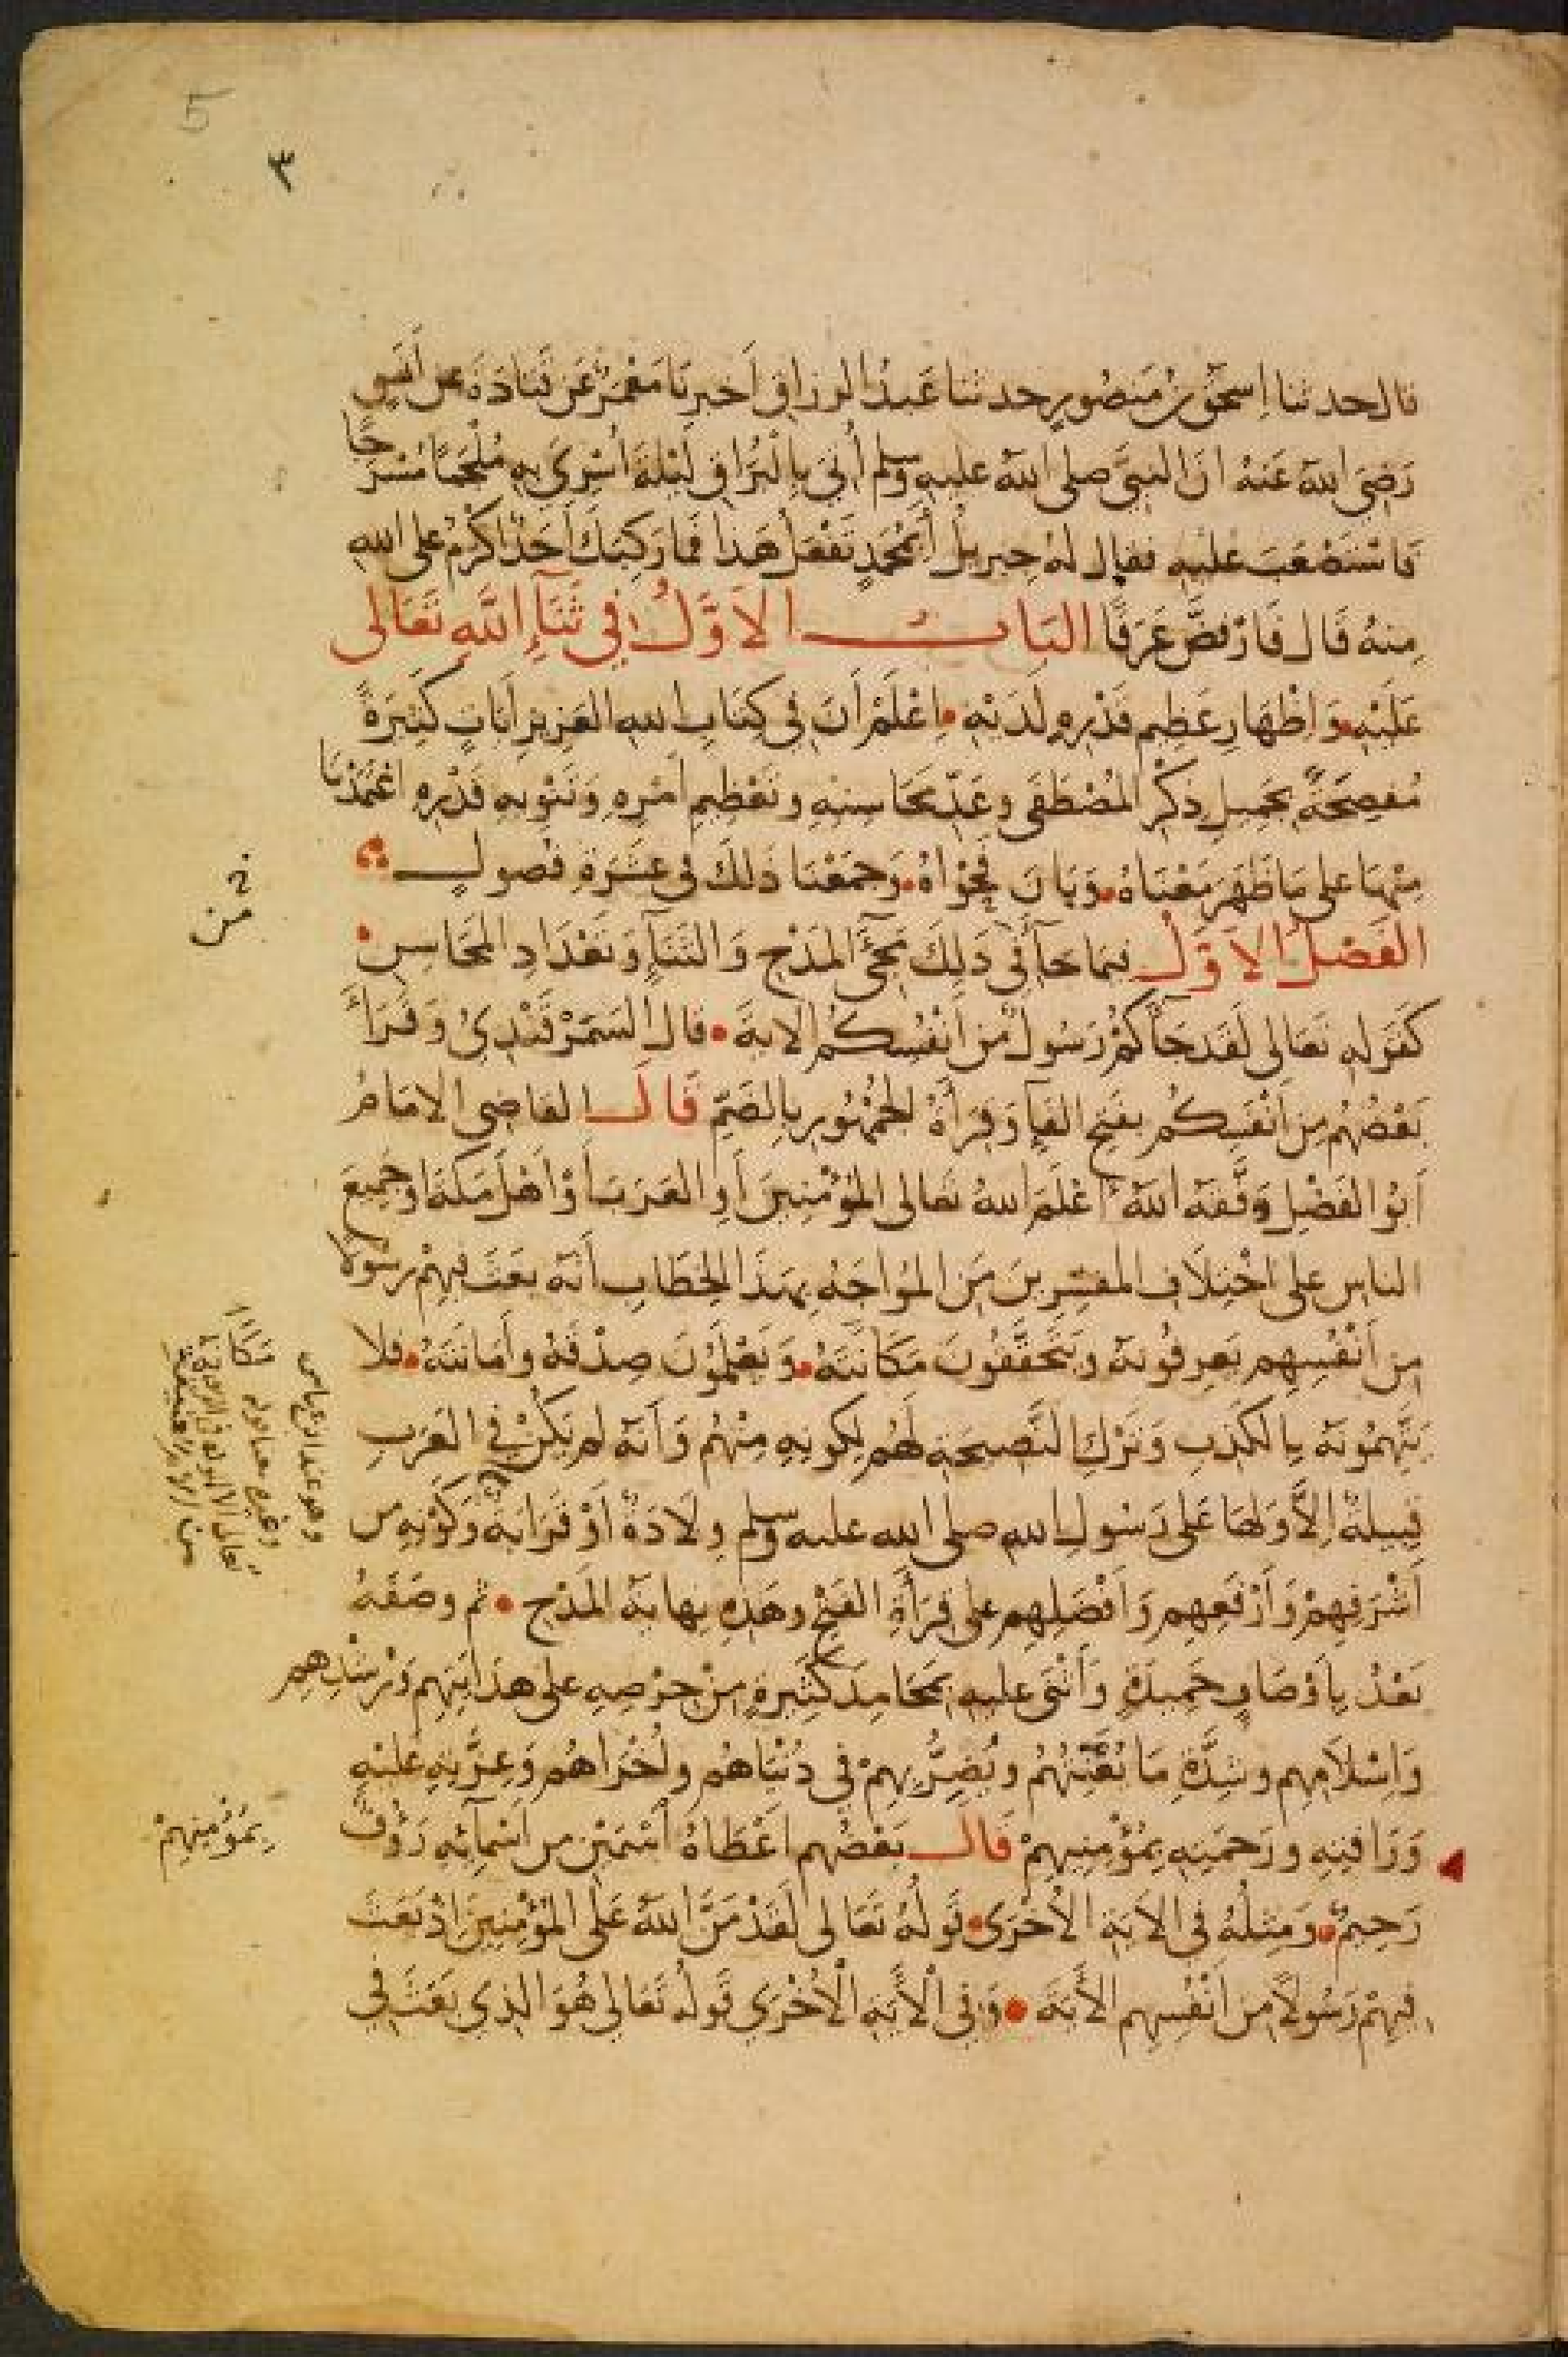 5
٣
قال حدثنا إسحق بن منصور حدثنا عبد الرزاق أخبرنا معمر عن قتادة عن أنس
رضي الله عنه أن النبي صلى الله عليه وسلم أتي بالبراق ليلة أسري به ملجما مسرجا
فاستصعب عليه فقال له جبريل أبمحمد تفعل هذا فما ركبك أحد أكرم على الله
منه قال فارفض عرقا الباب الأول في ثناء الله تعالى
عليه وإظهار عظيم قدره لديه اعلم أن في كتاب الله العزيز آيات كثيرة
مفصحة بجميل ذكر المصطفى وعد محاسنه وتعظيم أمره وتنويه قدره اعتمدنا
منها على ما ظهر معناه وبان فحواه وجمعنا ذلك في عشرة فصول
الفصل الأول فيما جاء في ذلك مجيء المدح والثناء وتعداد المحاسن
كقوله تعالى لقد جاءكم رسول من أنفسكم الآية قال السمرقندي وقرأ
بعضهم من أنفسكم بفتح الفاء وقرأة الجمهور بالضم قال القاضي الإمام
أبو الفضل وفقه الله أعلم الله تعالى المؤمنين أو العرب أو أهل مكة أو جميع
الناس على اختلاف المفسرين من المواجه بهذا الخطاب أنه بعث فيهم رسولا
من أنفسهم يعرفونه ويتحققون مكانته ويعلمون صدقه وأمانته فلا
يتهمونه بالكذب وترك النصيحة لهم لكونه منهم وأنه لم يكن في العرب
قبيلة إلا ولها على رسول الله صلى الله عليه وسلم ولادة أو قرابة وكونه من
أشرفهم وأرفعهم وأفضلهم على قرأة الفتح وهذه نهاية المدح ثم وصفه
بعد بأوصاف حميدة وأثنى عليه بمحامد كثيرة من حرصه على هدايتهم ورشدهم
وإسلامهم وشدة ما يعنتهم ويضر بهم في دنياهم وأخراهم وعزته عليه
ورأفته ورحمته بمؤمنيهم قال بعضهم أعطاه اسمين من أسمائه رؤف
رحيم ومثله في الآية الأخرى قوله تعالى لقد من الله على المؤمنين إذ بعث
فيهم رسولا من أنفسهم الآية وفي الآية الأخرى قوله تعالى هو الذي بعث في
من
وهو عند ابن عباس
بمؤمنيهم